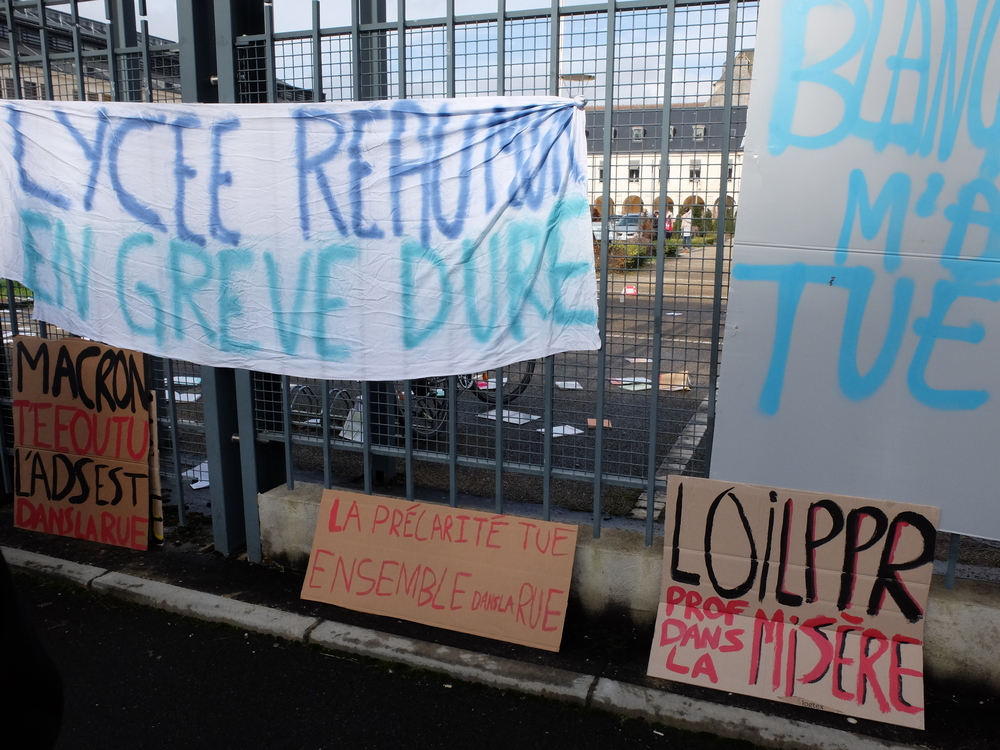 LYCEE REAUMUR
EN GREVE DURE
BLANQ
M'A
TUÉ
MACRON
T'EFOUTU
L'ADSEST
DANSLARUE
LA PRÉCARITÉ TUE
ENSEMBLE DANSLARUE
LOiLPPR
PROF
DANS
LA
MiSÈRE